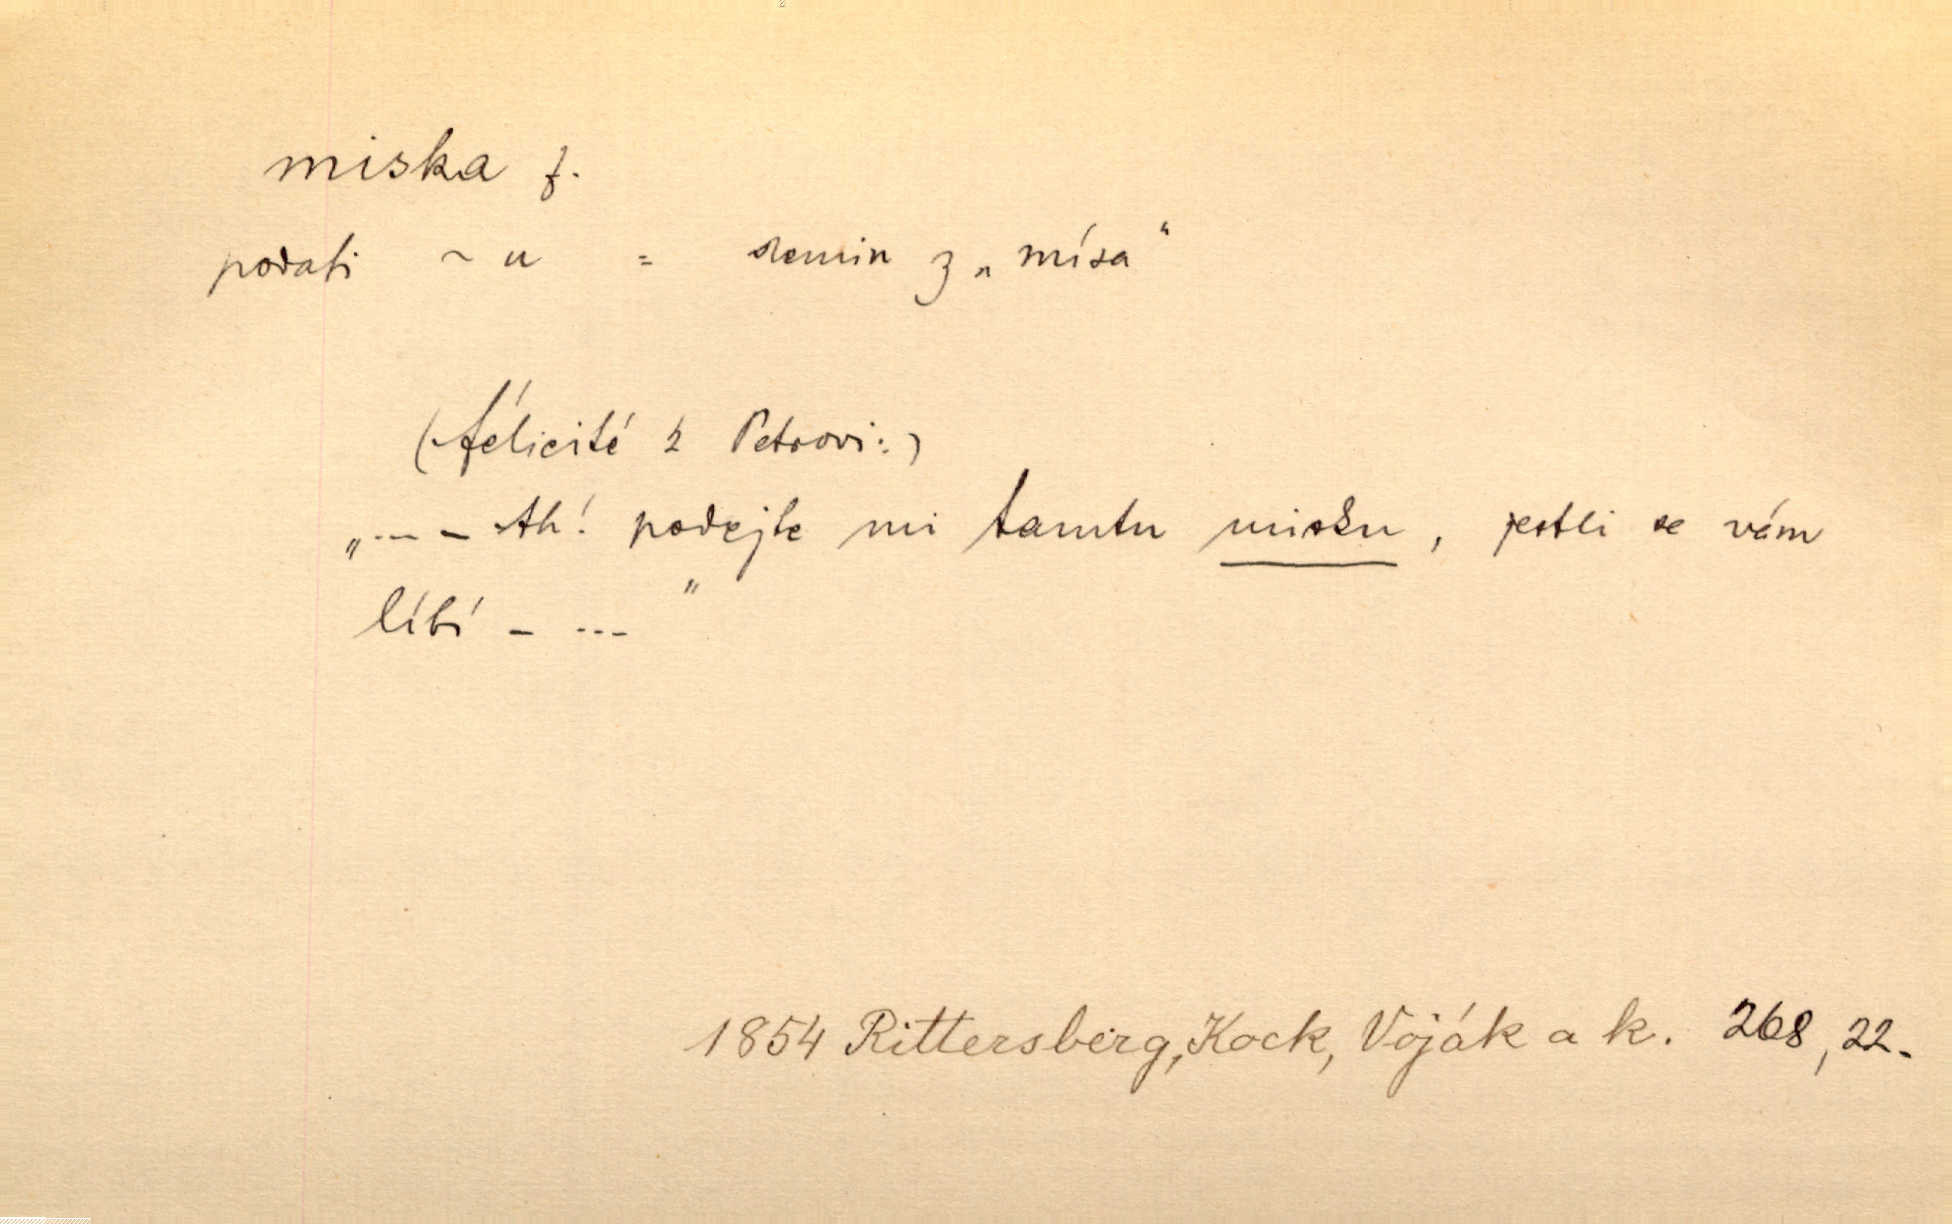 miska f.
podati ~ u = demin z „mísa“
(Félicité k Petrovi:)
„... – Ah! podejte mi tamtu misku, jestli se vám
líbí – ...“
1854 Rittersberg, Kock, Voják a k. 268, 22.